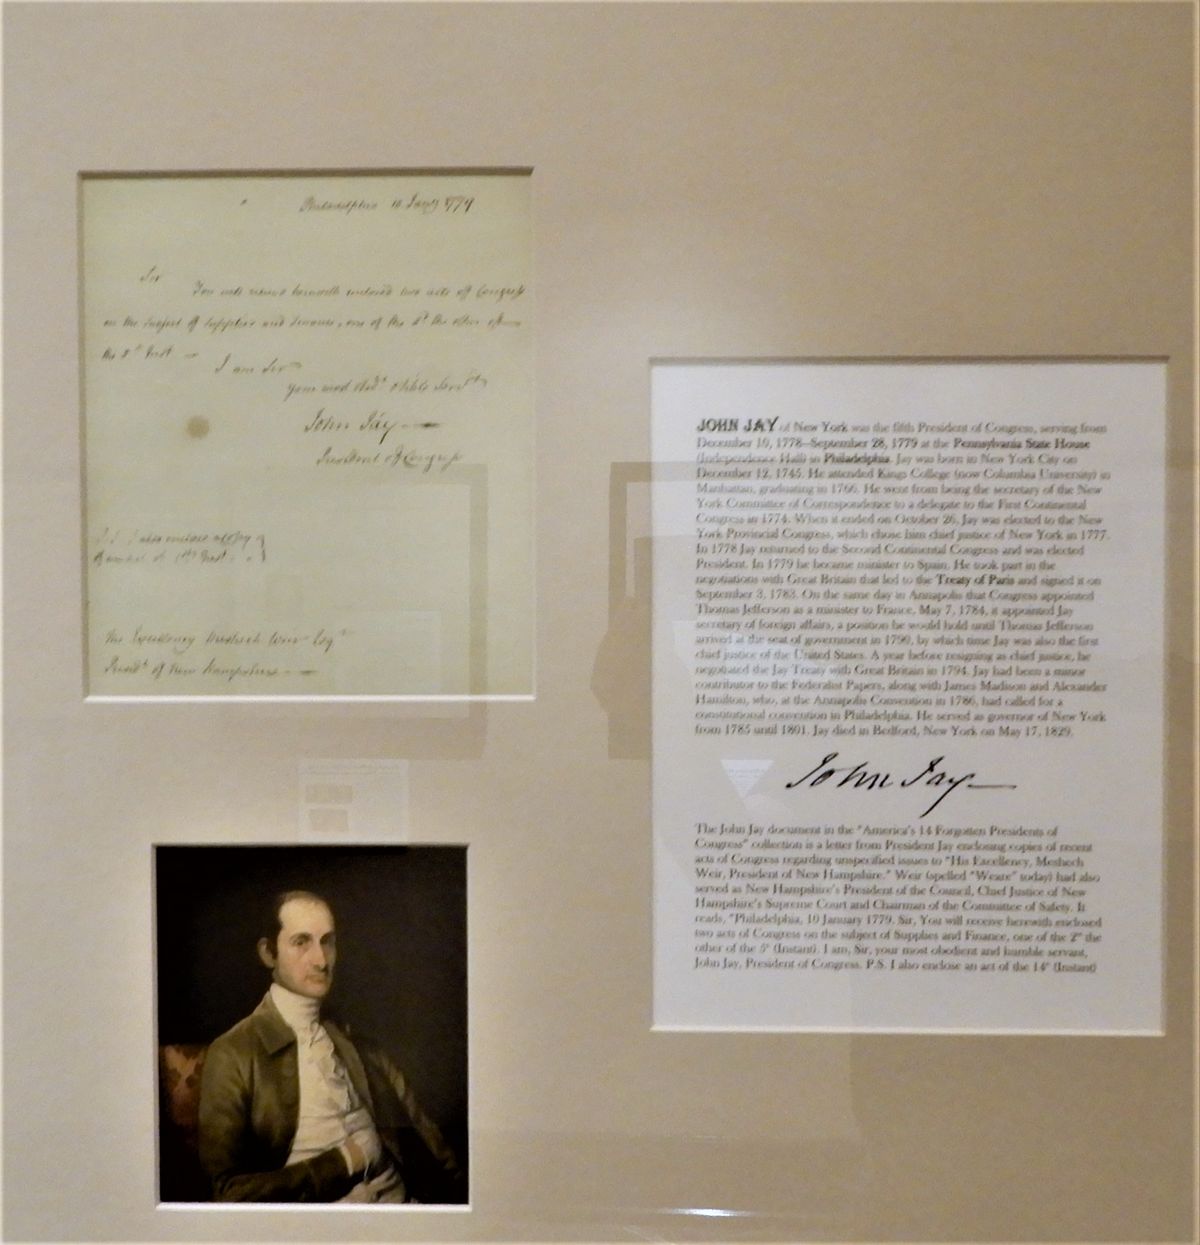 Philadelphia 10 Jany 1779
Sir
You will receive herewith enclosed two acts of Congress
on the subject of Supplies and Finance, one of the 2d the other of
the 5th Inst.
I am Sir
Your most Obdt & hble Servt
John Jay
President of Congress
P.S. I also enclose
of the Inst.
His Excellency Meshech Esqr
Presidt of New Hampshire
JOHN JAY of New York was the fifth President of Congress, serving from
December 10, 1778–September 28, 1779 at the Pennsylvania State House
(Independence Hall) in Philadelphia. Jay was born in New York City on
December 12, 1745. He attended Kings College (now Columbia University) in
Manhattan, graduating in 1766. He went from being the secretary of the New
York Committee of Correspondence to a delegate to the First Continental
Congress in 1774. When it ended on October 26, Jay was elected to the New
York Provincial Congress, which chose him chief justice of New York in 1777.
In 1778 Jay returned to the Second Continental Congress and was elected
President. In 1779 he became minister to Spain. He took part in the
negotiations with Great Britain that led to the Treaty of Paris and signed it on
September 3, 1783. On the same day in Annapolis that Congress appointed
Thomas Jefferson as a minister to France, May 7, 1784, it appointed Jay
secretary of foreign affairs, a position he would hold until Thomas Jefferson
arrived at the seat of government in 1790, by which time Jay was also the first
chief justice of the United States. A year before resigning as chief justice, he
negotiated the Jay Treaty with Great Britain in 1794. Jay had been a minor
contributor to the Federalist Papers, along with James Madison and Alexander
Hamilton, who, at the Annapolis Convention in 1786, had called for a
constitutional convention in Philadelphia. He served as governor of New York
from 1785 until 1801. Jay died in Bedford, New York on May 17, 1829.
John Jay
The John Jay document in the "America's 14 Forgotten Presidents of
Congress" collection is a letter from President Jay enclosing copies of recent
acts of Congress regarding unspecified issues to "His Excellency, Meshech
Weir, President of New Hampshire." Weir (spelled "Weare" today) had also
served as New Hampshire's President of the Council, Chief Justice of New
Hampshire's Supreme Court and Chairman of the Committee of Safety. It
reads, "Philadelphia, 10 January 1779. Sir, You will receive herewith enclosed
two acts of Congress on the subject of Supplies and Finance, one of the 2º the
other of the 5º (Instant). I am, Sir, your most obedient and humble servant,
John Jay, President of Congress. P.S. I also enclose an act of the 14º (Instant)